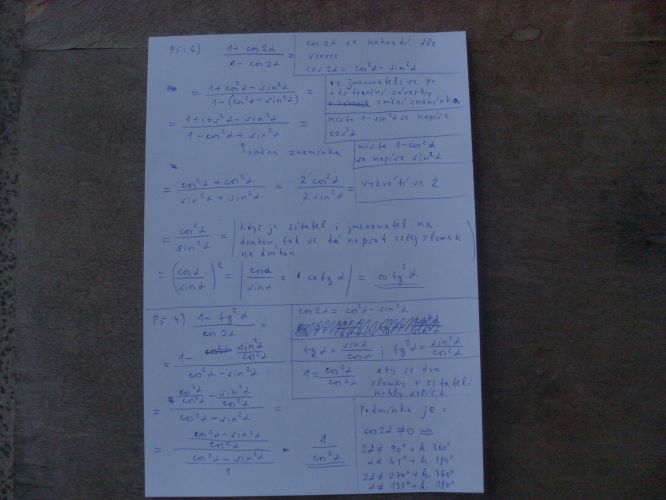 Př. 6) 1 + cos2α / 1 - cos2α =
cos 2α se nahradí dle
vzorce
cos 2α = cos²α - sin²α
= 1 + cos²α - sin²α / 1 - (cos²α - sin²α) =
ve jmenovateli se po
odstranění závorky
změní znaménka
= 1 + cos²α - sin²α / 1 - cos²α + sin²α =
místo 1 - sin²α se napíše
cos²α
↑ změna znaménka
místo 1 - cos²α
se napíše sin²α
= cos²α - cos²α / sin²α + sin²α = 2 cos²α / 2 sin²α =
vykrátí se 2
= cos²α / sin²α =
když je čitatel i jmenovatel na
druhou, tak se dá napsat celý zlomek
na druhou
= (cosα / sinα)² = | cosα / sinα = cotg α | = cotg²α
Př. 4) 1 - tg²α / cos 2α =
cos 2α = cos²α - sin²α
= 1 - sin²α / cos²α / cos²α - sin²α
tg α = sinα / cosα ; tg²α = sin²α / cos²α
1 = cos²α / cos²α aby se dva
zlomky v čitateli
mohly sečíst
= cos²α / cos²α - sin²α / cos²α / cos²α - sin²α =
Podmínka je :
cos 2α ≠ 0 ⇒
= cos²α - sin²α / cos²α / cos²α - sin²α / 1 = 1 / cos²α
2α ≠ 90° + k. 360°
α ≠ 45° + k. 180°
2α ≠ 270° + k. 360°
α ≠ 135° + k. 180°